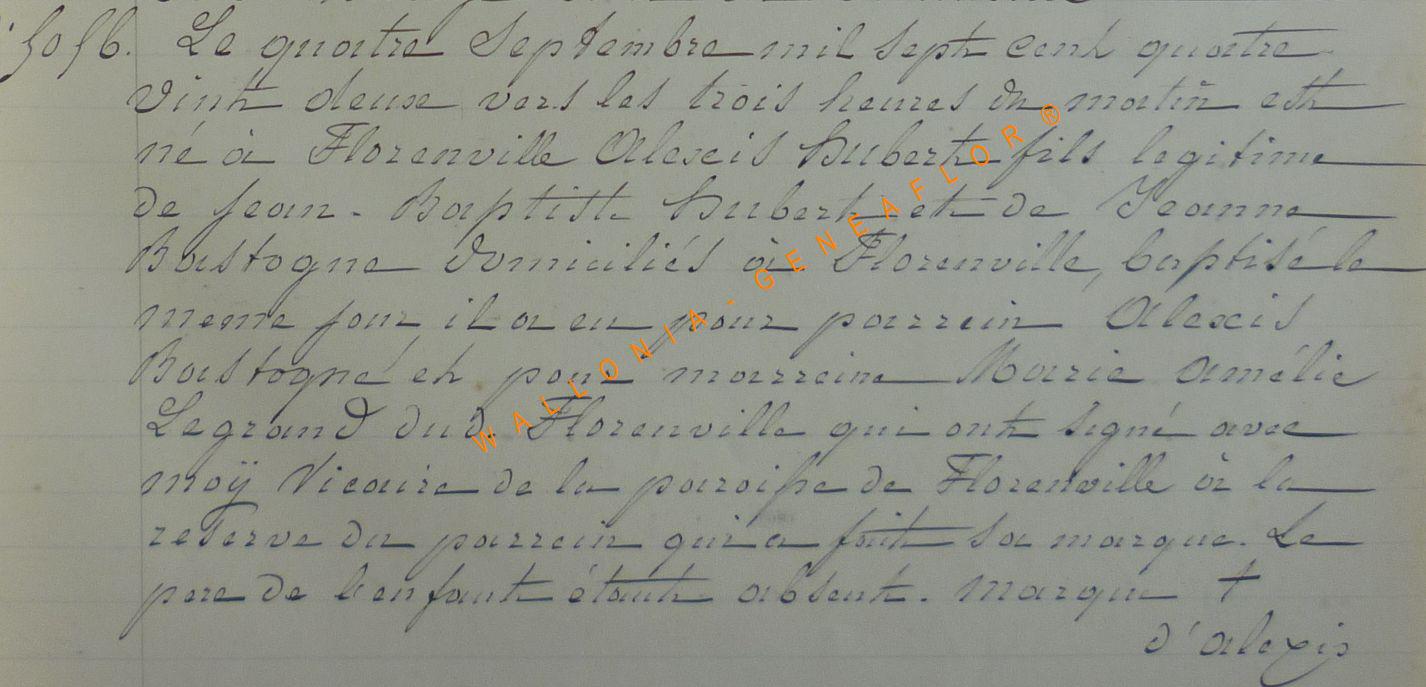 5056. Le quatre Septembre mil sept cent quatre
vint deux vers les trois heures du matin est
né à Florenville Alexis hubert fils legitime
de Jean-Baptiste hubert et de Jeanne
Bastogne domiciliés à Florenville, baptisé le
meme jour il a eu pour parrein Alexis
Bastogne et pour marreine Marie Amélie
Legrand dud. Florenville qui ont signé avec
moÿ Vicaire de la paroisse de Florenville à la
reserve du parrein qui a fait sa marque. Le
pere de l'enfant étant absent. Marque +
d'alexis
WALLONIA - GENEAFLOR ®